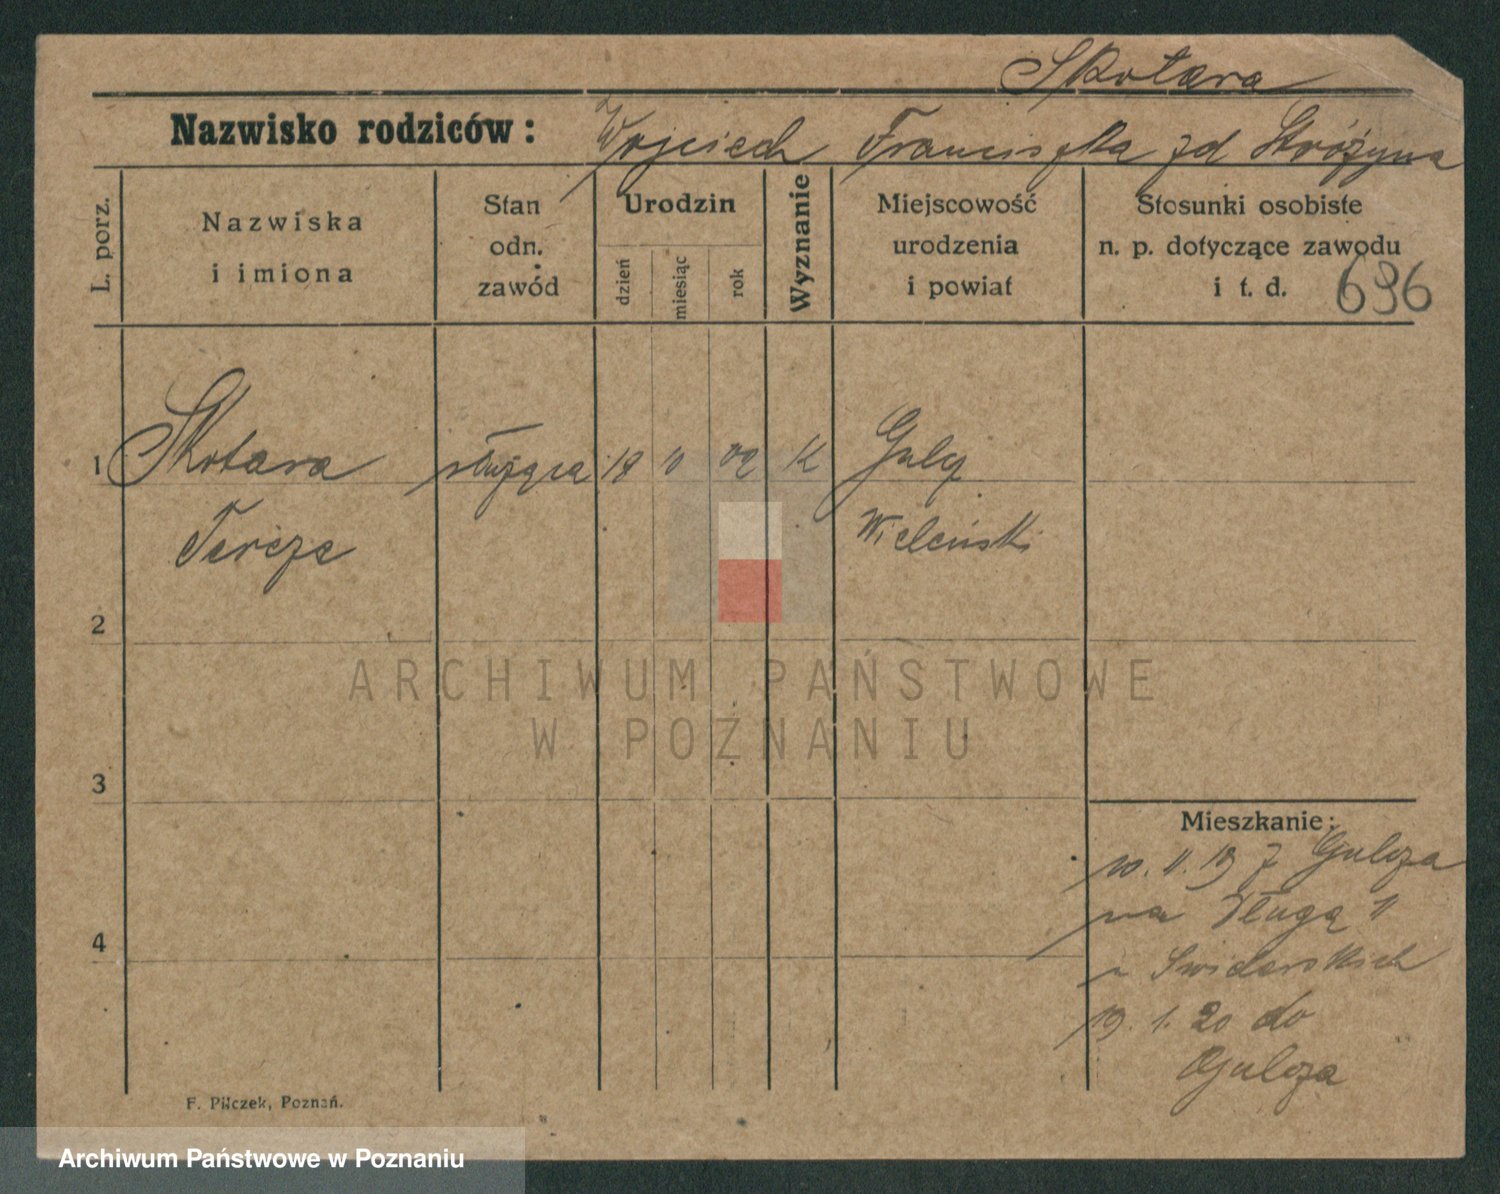 Skotara
Nazwisko rodziców: Wojciech Franciszka zd Stróżyna
L. porz.
Nazwiska
i imiona
Stan
odn.
zawód
Urodzin
dzień
miesiąc
rok
Wyznanie
Miejscowość
urodzenia
i powiat
Stosunki osobiste
n. p. dotyczące zawodu
i t. d. 696
1 Skotara służąca 18 02 K Gulcz
Tereza Wieleński
2
ARCHIWUM PAŃSTWOWE
W POZNANIU
3
Mieszkanie:
10. 11. 19 z Gulcza
na Długą 11
Swiderskich
4
19. 1. 20 do
Gulcza
F. Pilczek, Poznań.
Archiwum Państwowe w Poznaniu